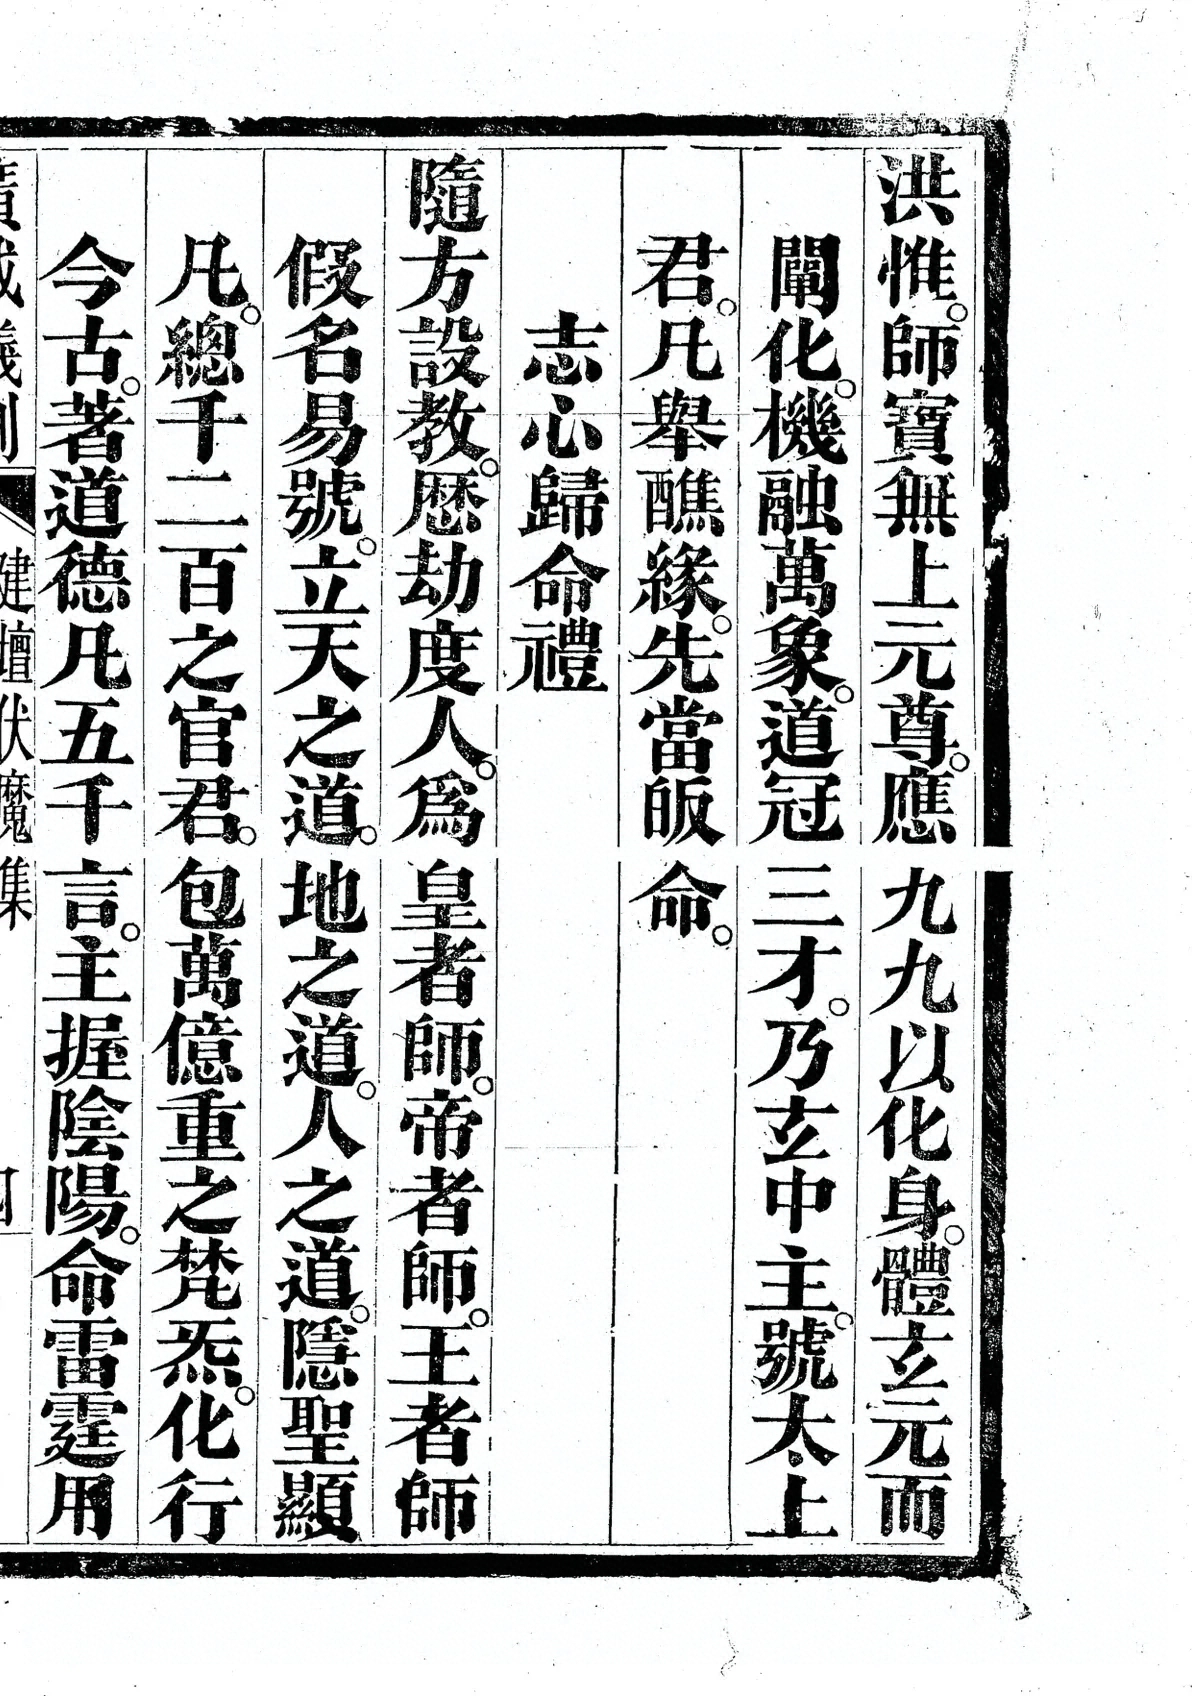 洪惟。師寶無上元尊。應九九以化身。體玄元而
闡化。機融萬象。道冠三才。乃玄中主。號太上
君。凡舉醮緣。先當皈命。
志心歸命禮
隨方設教。歷劫度人。爲皇者師。帝者師。王者師
假名易號。立天之道。地之道。人之道。隱聖顯
凡。總千二百之官君。包萬億重之梵炁。化行
今古。著道德凡五千言。主握陰陽。命雷霆用
廣成儀制 建壇伏魔集 四